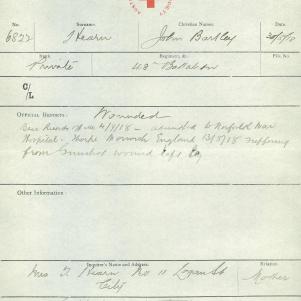 No:
Surname:
Christian Names:
Date:
6822 Hearn John Bartley 30/5/18
Rank:
Regiment, &c.
File No.
Private 48th Battalion
C/
/L
OFFICIAL REPORTS: Wounded
Base Records 4/7/18 - admitted to Norfolk War
Hospital - Thorpe Norwich England 13/5/18 suffering
from Gunshot wound Left Leg
Other Information:
Inquirer's Name and Address:
Relation:
Mrs T. Hearn No 11 Logan St
City
Mother